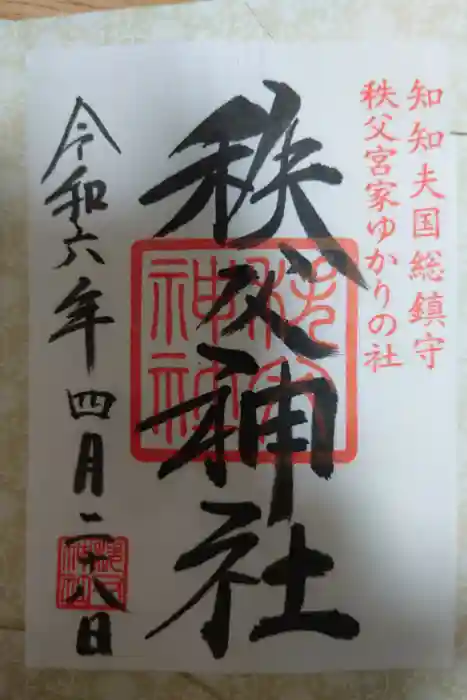 知知夫国総鎮守
秩父宮家ゆかりの社
秩父神社
令和六年四月二十八日